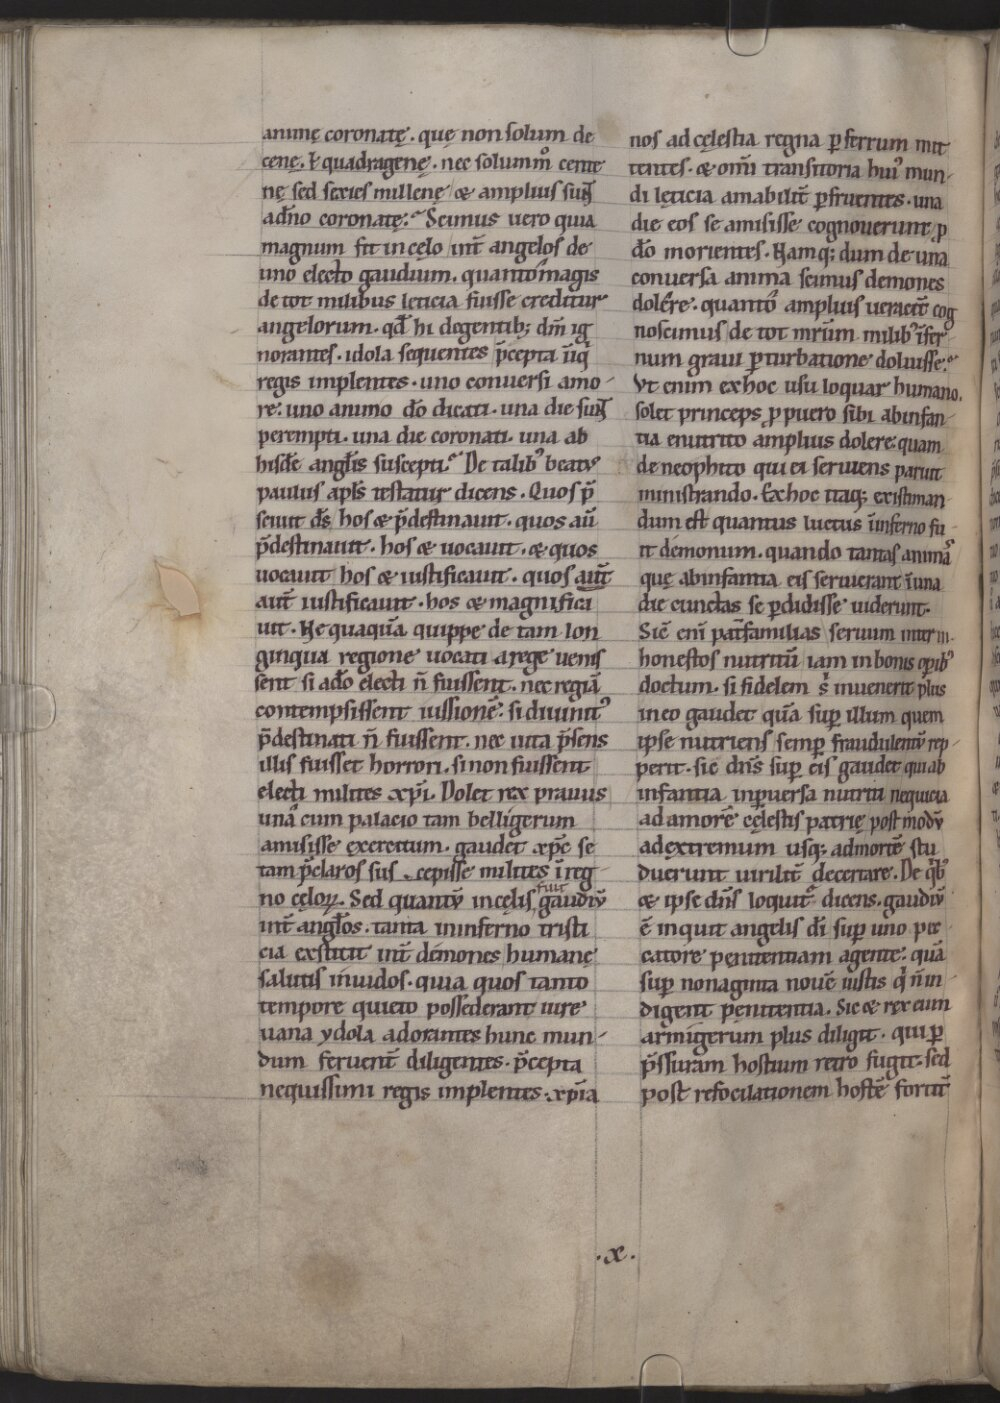 animę coronatę. quę non solum de
cenę. & quadragenę. nec solummͦ cente
nę sed sexies millenę & amplius sunt
ad dn̄o coronatę. Scimus uero quia
magnum fit in celo int̄ angelos de
uno electo gaudium. quanto magis
de tot milibus leticia fuisse creditur
angelorum. qd̄ hi degentib; dm̄ ig
norantes. idola sequentes p̄cepta iniq̄
regis implentes. uno conuersi amo-
re: uno animo dō dicati. una die sunt
perempti. una die coronati. una ab
hisdē angl̄is suscepti. De talib⁹ beatꝰ
paulus apl̄s testatur dicens. Quos p̄
sciuit ds̄ hos & p̄destinauit. quos aū
p̄destinauit. hos & uocauit. & quos
uocauit hos & iustificauit. quos aut̄
aut̄ iustificauit. hos & magnifica
uit. Nequaquā quippe de tam lon
ginqua regione uocati a rege uenis
sent si a dō electi n̄ fuissent. nec regiā
contempsissent iussionē: si diuinit⁹
p̄destinati n̄ fuissent. nec uita p̄sens
illis fuisset horrori. si non fuissent
electi milites xp̄i. Dolet rex prauus
unā cum palacio tam belligerum
amisisse exercitum. gaudet xp̄c se
tam p̄claros suscepisse milites ī reg
no cęloꝝ. Sed quantū in cęlis fuit gaudiū
int̄ angl̄os. tanta in inferno tristi
cia exstitit int̄ dęmones humanę
salutis inuidos. quia quos tanto
tempore quieto possederant iure
uana ydola adorantes hunc mun-
dum feruent̄ diligentes. p̄cepta
nequissimi regis implentes. xp̄ia
nos ad cęlestia regna ꝑ ferrum mit
tentes. & om̄i transitoria hui⁹ mun-
di lęticia amabilit̄ ꝑfruentes. una
die eos se amisisse cognouerunt ꝓ
dō morientes. Namq; dum de una
conuersa anima scimus demones
dolere. quanto amplius ueracit̄ cog
noscimus de tot mr̄um milib⁹ īfer
num graui ꝑturbatione doluisse.
Vt enim ex hoc usu loquar humano.
solet princeps ꝓ puero sibi ab infan-
tia enutrito amplius dolere: quam
de neophito qui ei seruiens paruit
ministrando. Ex hoc itaq; existiman-
dum est quantus luctus ī inferno fu-
it dęmonum. quando tantas animas
quę ab infantia eis seruierant ī una
die cunctas se ꝑdidisse uiderunt.
Sic enī pat̄familias seruum inter in-
honestos nutritū iam in bonis opib⁹
doctum. si fidelem s̄ inuenerit plus
in eo gaudet quā suꝑ illum quem
ipse nutriens semꝑ fraudulentū rep-
perit. sic dn̄s suꝑ eis gaudet qui ab
infantia in ꝑuersa nutriti nequicia
ad amorē cęlestis patrię post modū
ad extremum usq; ad mortē stu
duerunt uirilit̄ decertare. De q̄b⁹
& ipse dn̄s loquit̄ dicens. gaudiū
ē inquit angelis dī suꝑ uno pec
catore penitentiam agente: quā
suꝑ nonaginta nouē iustis q̄ n̄ in-
digent penitentia. Sic & rex eum
armigerum plus diligit. qui ꝑ
p̄ssuram hostium retro fugit. sed
post refocilationem hostē fortit̄
.x.